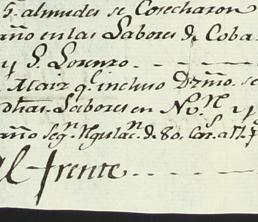 5. almudes se Cosecharon
año en las Labores de Coba
y S. Lorenzo
Maiz q.e incluso Dzmo. se
dhas. Labores en No.
año Seg.n de 80. Car. a 11. p
al frente